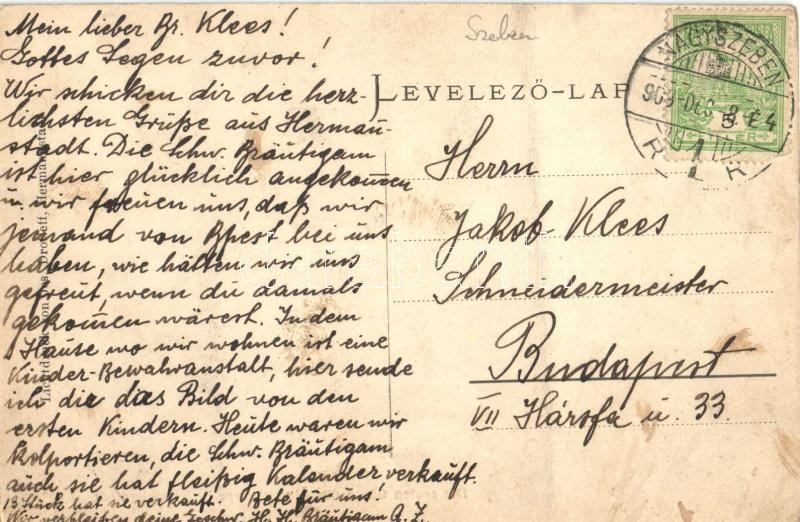 Mein lieber Br. Klees!
Gottes Segen zuvor!
Wir schicken dir die herz-
lichsten Grüße aus Hermann-
stadt. Die Schw. Bräutigam
ist hier glücklich angekom̅en
u. wir freuen uns, daß wir
jemand von Bpest bei uns
haben, wie hätten wir uns
gefreut, wenn du damals
gekom̅en wärest. In dem
Hause wo wir wohnen ist eine
Kinder-Bewahranstalt, hier sende
ich dir das Bild von den
ersten Kindern. Heute waren wir
kolportieren, die Schw. Bräutigam
auch sie hat fleißig Kalender verkauft.
13 Stück hat sie verkauft. Bete für uns!
Wir verbleiben deine Geschw. H. H. Bräutigam A. Z.
Szeben
LEVELEZŐ-LAP
NAGYSZEBEN
909 DEC 8
Herrn
Jakob Klees
Schneidermeister
Budapest
VII Hársfa u. 33.
Drotleff, Hermannstadt